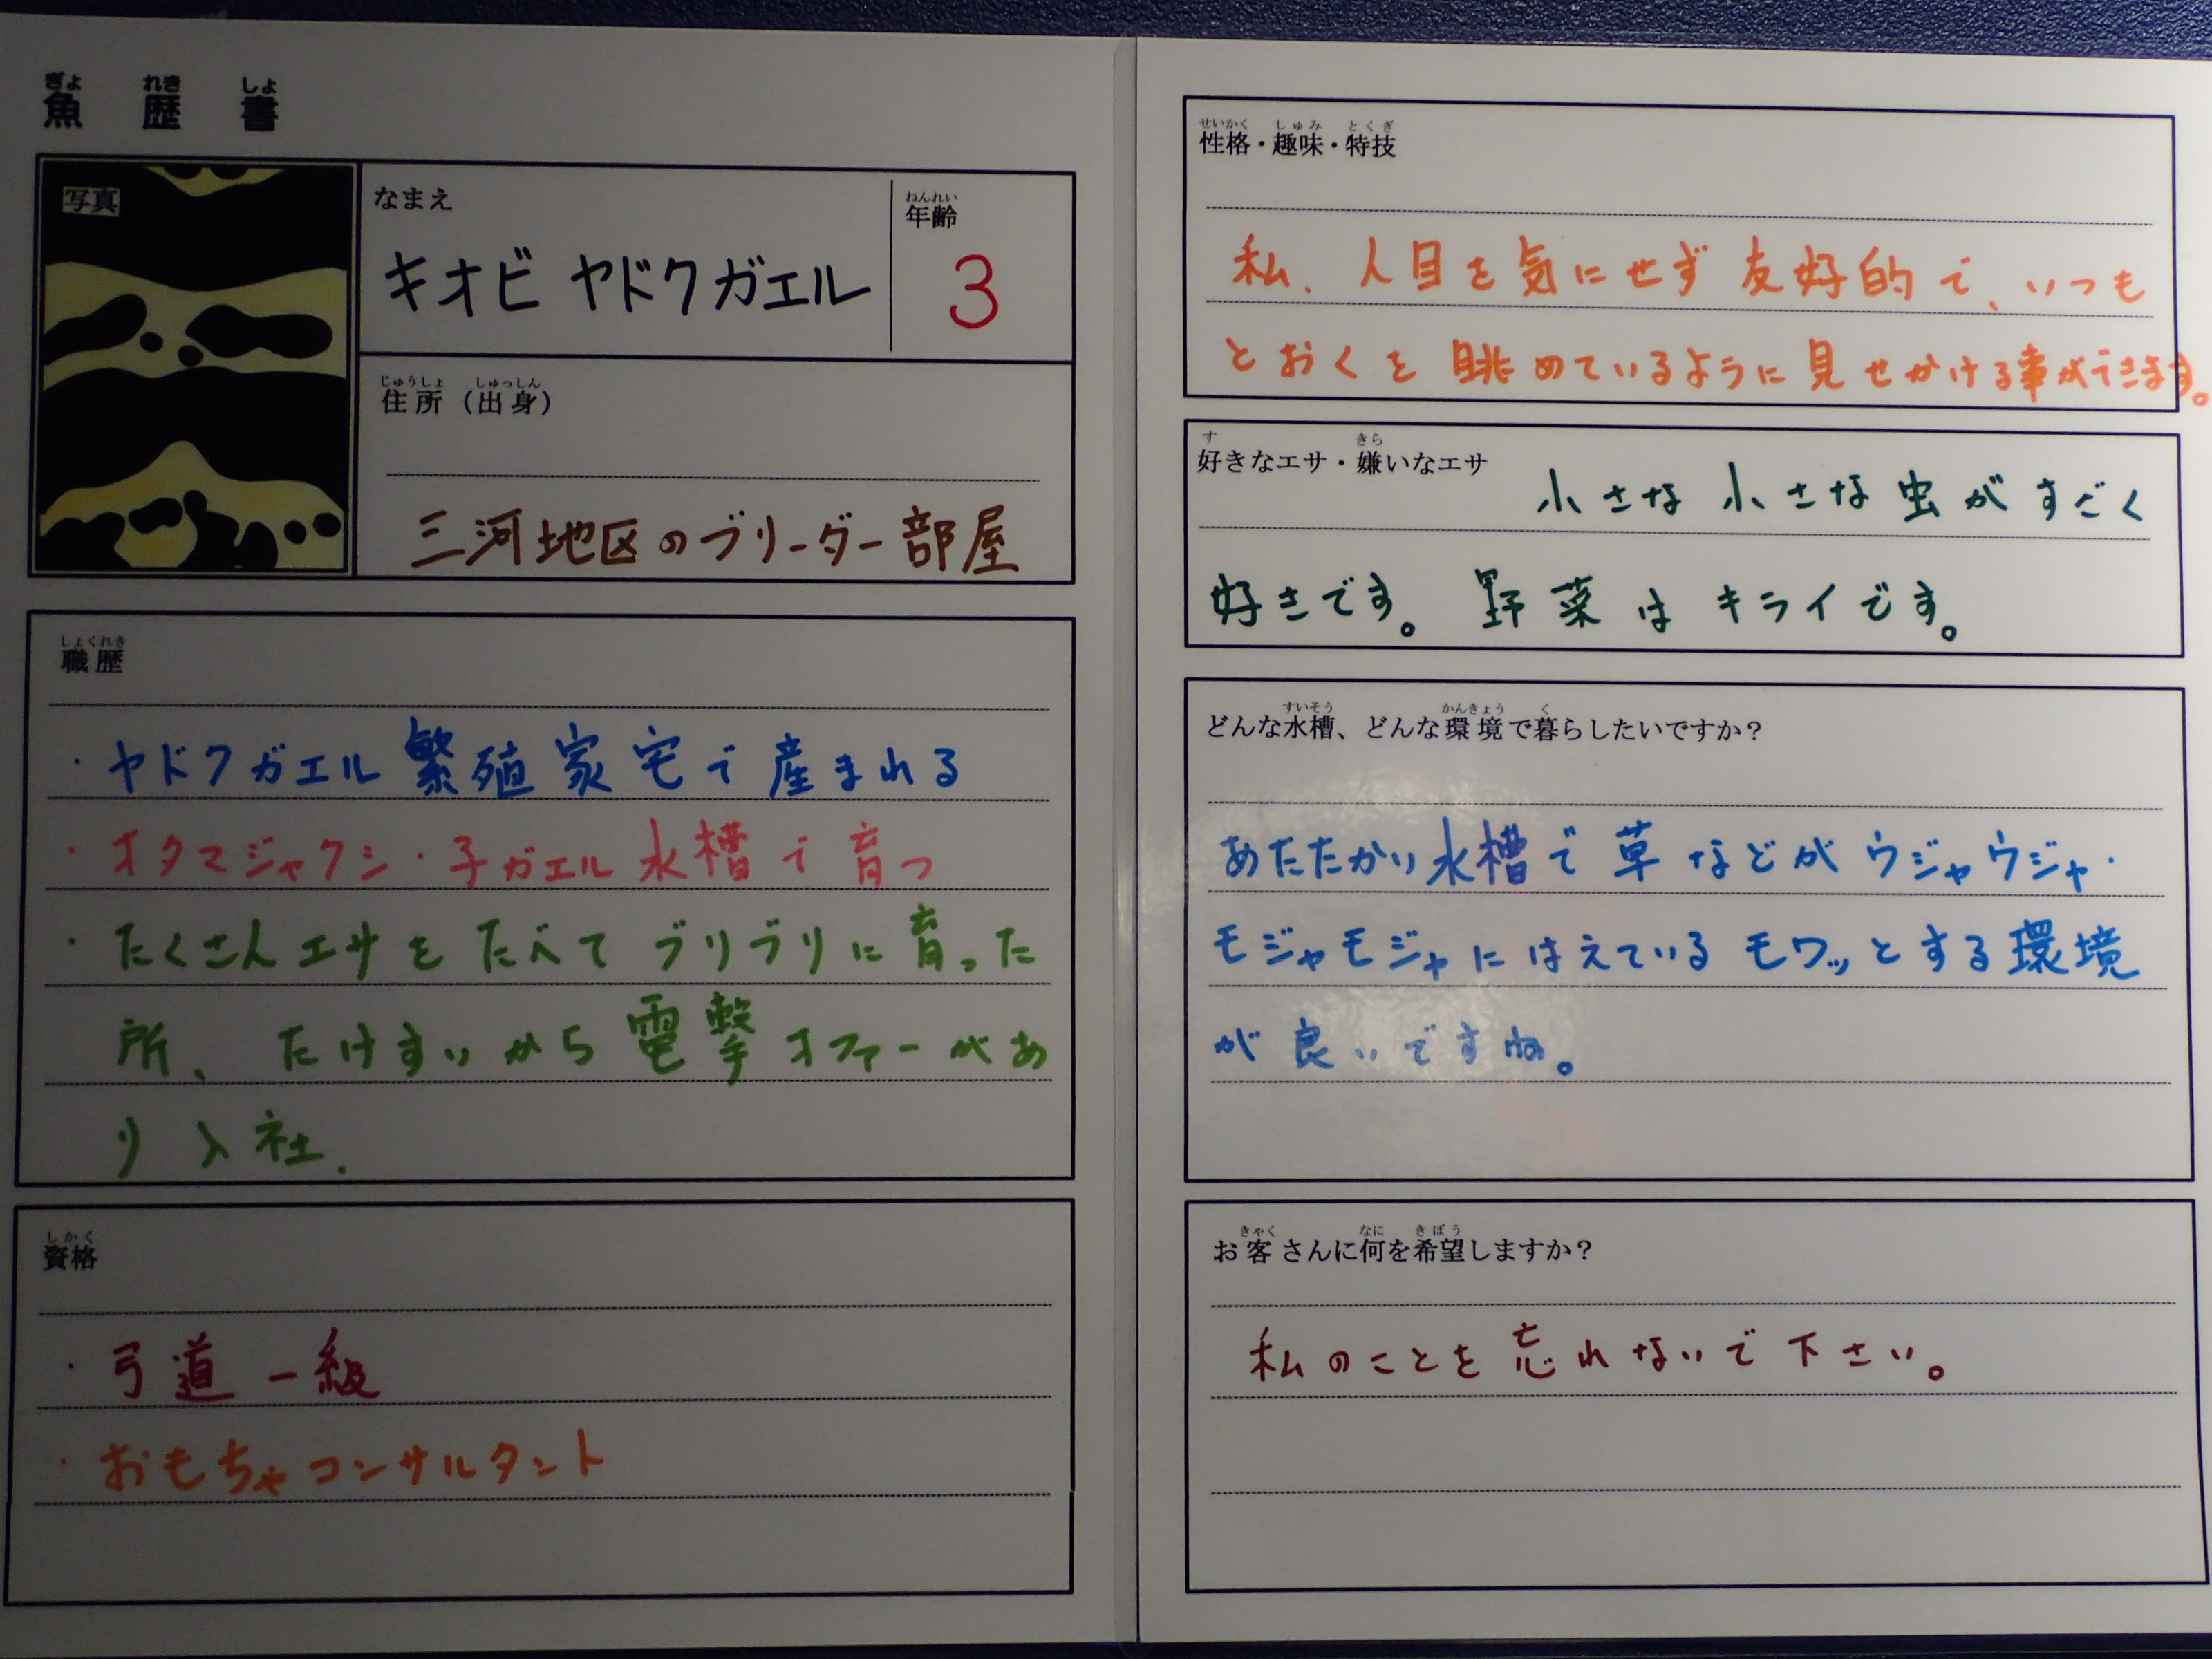 魚歴書
写真
なまえ
キオビヤドクガエル
年齢
3
住所（出身）
三河地区のブリーダー部屋
職歴
・ヤドクガエル繁殖家宅で産まれる
・オタマジャクシ・子ガエル水槽で育つ
・たくさんエサをたべてブリブリに育った
所、たけすいから電撃オファーがあ
り入社.
資格
・弓道一級
・おもちゃコンサルタント
性格・趣味・特技
私、人目を気にせず友好的で、いつも
とおくを眺めているように見せかける事ができます。
好きなエサ・嫌いなエサ
小さな小さな虫がすごく
好きです。野菜はキライです。
どんな水槽、どんな環境で暮らしたいですか？
あたたかい水槽で草などがウジャウジャ・
モジャモジャにはえているモワッとする環境
が良いですね。
お客さんに何を希望しますか？
私のことを忘れないで下さい。